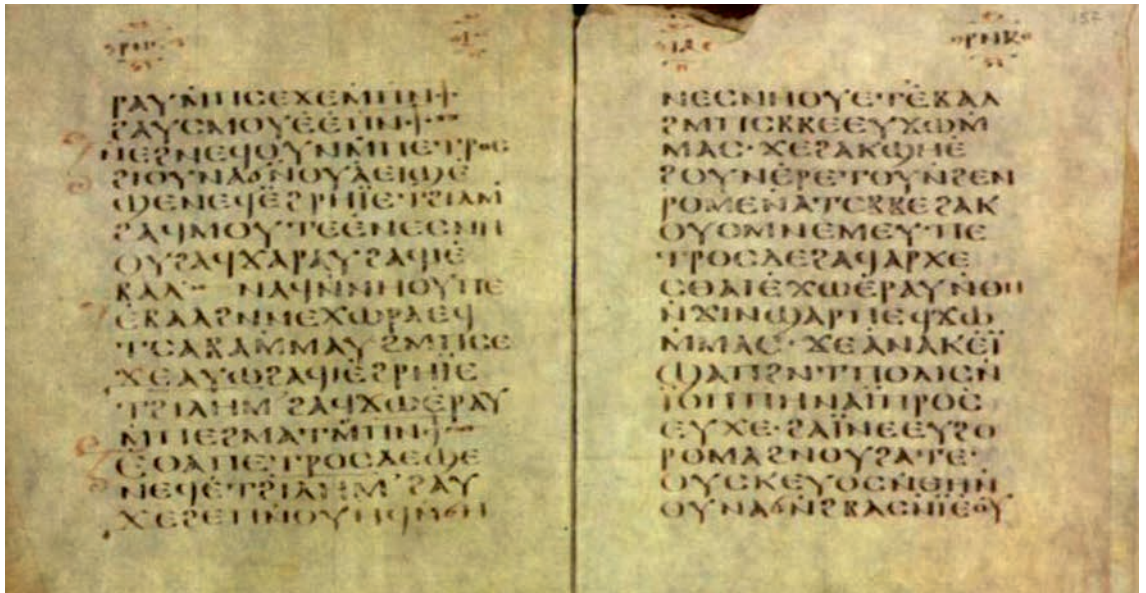 ⲣⲁⲩⲙ̇ⲡⲥⲉϫⲉⲙ̇ⲡⲛ·ϯ·
ϩⲁⲩⲥⲙⲟⲩⲉ̇ⲉ̇ⲡⲛ·ϯ·
ⲛⲉϩⲛⲉϥⲟⲩⲛⲙ̇ⲡⲉⲧⲣⲟⲥ
ϩⲓⲟⲩⲛⲁϭⲛ̇ⲟⲩⲁ̇ⲉⲓϣⲉ̇
ϣⲉⲛⲉϥⲉ̇ϩⲣⲏⲓ̈ⲉ·ⲧϩⲓⲗⲏⲙ
ϩⲁϥⲙⲟⲩⲧⲉⲉ̇ⲛⲉⲥⲛⲏ
ⲟⲩϩⲁϥϫⲁⲣⲁⲩϩⲁϥⲓⲉ̇
ⲃⲁⲗ ⲛⲁϥⲛ̇ⲛⲏⲟⲩⲡⲉ
ⲉ̇ⲃⲁⲗϩⲛⲛⲉⲭⲱⲣⲁⲉϥ
ⲧⲥⲁⲃⲁⲙ̇ⲙⲁⲩϩⲙⲡⲥⲉ
ϫⲉⲁⲩⲱϩⲁϥⲓⲉ̇ϩⲣⲏⲓ̈ⲉ
ⲧϩⲓⲗⲏⲙϩⲁϥϫⲱⲉ̇ⲣⲁⲩ
ⲙ̇ⲡⲉϩⲙⲁⲧⲙ̇ⲡⲛ·ϯ·
ϩⲟⲧⲁⲡⲉⲧⲣⲟⲥⲇⲉϣⲉ
ⲛⲉϥⲉ̇ⲧϩⲓⲗⲏⲙϩⲁⲩ
ϫⲉϩⲉⲡⲛ̇ⲟⲩⲏϥⲛϭⲏ
ⲛⲉⲥⲛⲏⲟⲩⲉ·ⲧⲉ̇ⲃⲁⲗ
ϩⲙⲡⲥⲃⲃⲉⲉⲩϫⲱⲙ̇
ⲙⲁⲥ·ϫⲉϩⲁⲕϣⲏⲉ̇
ϩⲟⲩⲛⲉ̇ⲣⲉ·ⲧⲟⲩⲛ̇ϩⲉⲛ
ⲣⲟⲙⲉⲛ̇ⲁⲧⲥⲃⲃⲉϩⲁⲕ
ⲟⲩⲟⲙⲛⲉⲙⲉⲩ·ⲡⲉ
ⲧⲣⲟⲥⲇⲉϩⲁϥⲁⲣⲭⲉ
ⲥⲑⲁⲓⲉ̇ϫⲱⲉ̇ⲣⲁⲩⲛ̇ⲑⲏ
ⲛ̇ϫⲓⲛϣⲁⲣⲡⲉϥϫⲱ
ⲙ̇ⲙⲁⲥ·ϫⲉⲁ̇ⲛⲁⲕⲉⲓ̈
ϣⲁⲡϩⲛ·ⲧⲡⲟⲗⲓⲥⲛ̇
ⲓ̈ⲟⲡⲡⲏⲛⲁⲓ̈ⲡⲣⲟⲥ
ⲉⲩⲭⲉ·ϩⲁⲓ̈ⲛⲉⲉⲩϩⲟ
ⲣⲟⲙⲁϩⲛⲟⲩϩⲁⲧⲉ·
ⲟⲩⲥⲕⲉⲩⲟⲥⲛ̇ⲑⲏⲛ̇
ⲟⲩⲛⲁϭⲛ̇ϩⲃⲁⲥⲛ̇ⲓ̈ⲉⲟⲩ